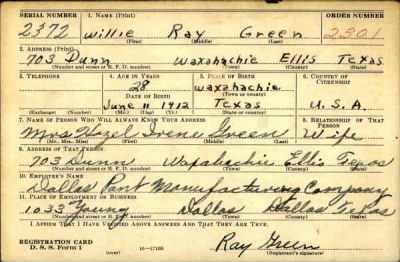 SERIAL NUMBER 1. NAME (Print) ORDER NUMBER
2372 Willie Ray Green 2301
(First) (Middle) (Last)
2. ADDRESS (Print)
703 Dunn Waxahachie Ellis Texas
(Number and street or R. F. D. number) (Town) (County) (State)
3. TELEPHONE 4. AGE IN YEARS 5. PLACE OF BIRTH 6. COUNTRY OF CITIZENSHIP
28 Waxahachie
DATE OF BIRTH (Town or county)
June 11 1912 Texas U.S.A.
(Exchange) (Number) (Mo.) (Day) (Yr.) (State or country)
7. NAME OF PERSON WHO WILL ALWAYS KNOW YOUR ADDRESS 8. RELATIONSHIP OF THAT PERSON
Mrs Hazel Irene Green Wife
(Mr., Mrs., Miss) (First) (Middle) (Last)
9. ADDRESS OF THAT PERSON
703 Dunn Waxahachie Ellis Texas
(Number and street or R. F. D. number) (Town) (County) (State)
10. EMPLOYER'S NAME
Dallas Pant Manufacturing Company
11. PLACE OF EMPLOYMENT OR BUSINESS
1033 Young Dallas Dallas Texas
(Number and street or R. F. D. number) (Town) (County) (State)
I AFFIRM THAT I HAVE VERIFIED ABOVE ANSWERS AND THAT THEY ARE TRUE.
REGISTRATION CARD
D. S. S. Form 1 (over) 16—17105
Ray Green
(Registrant's signature)